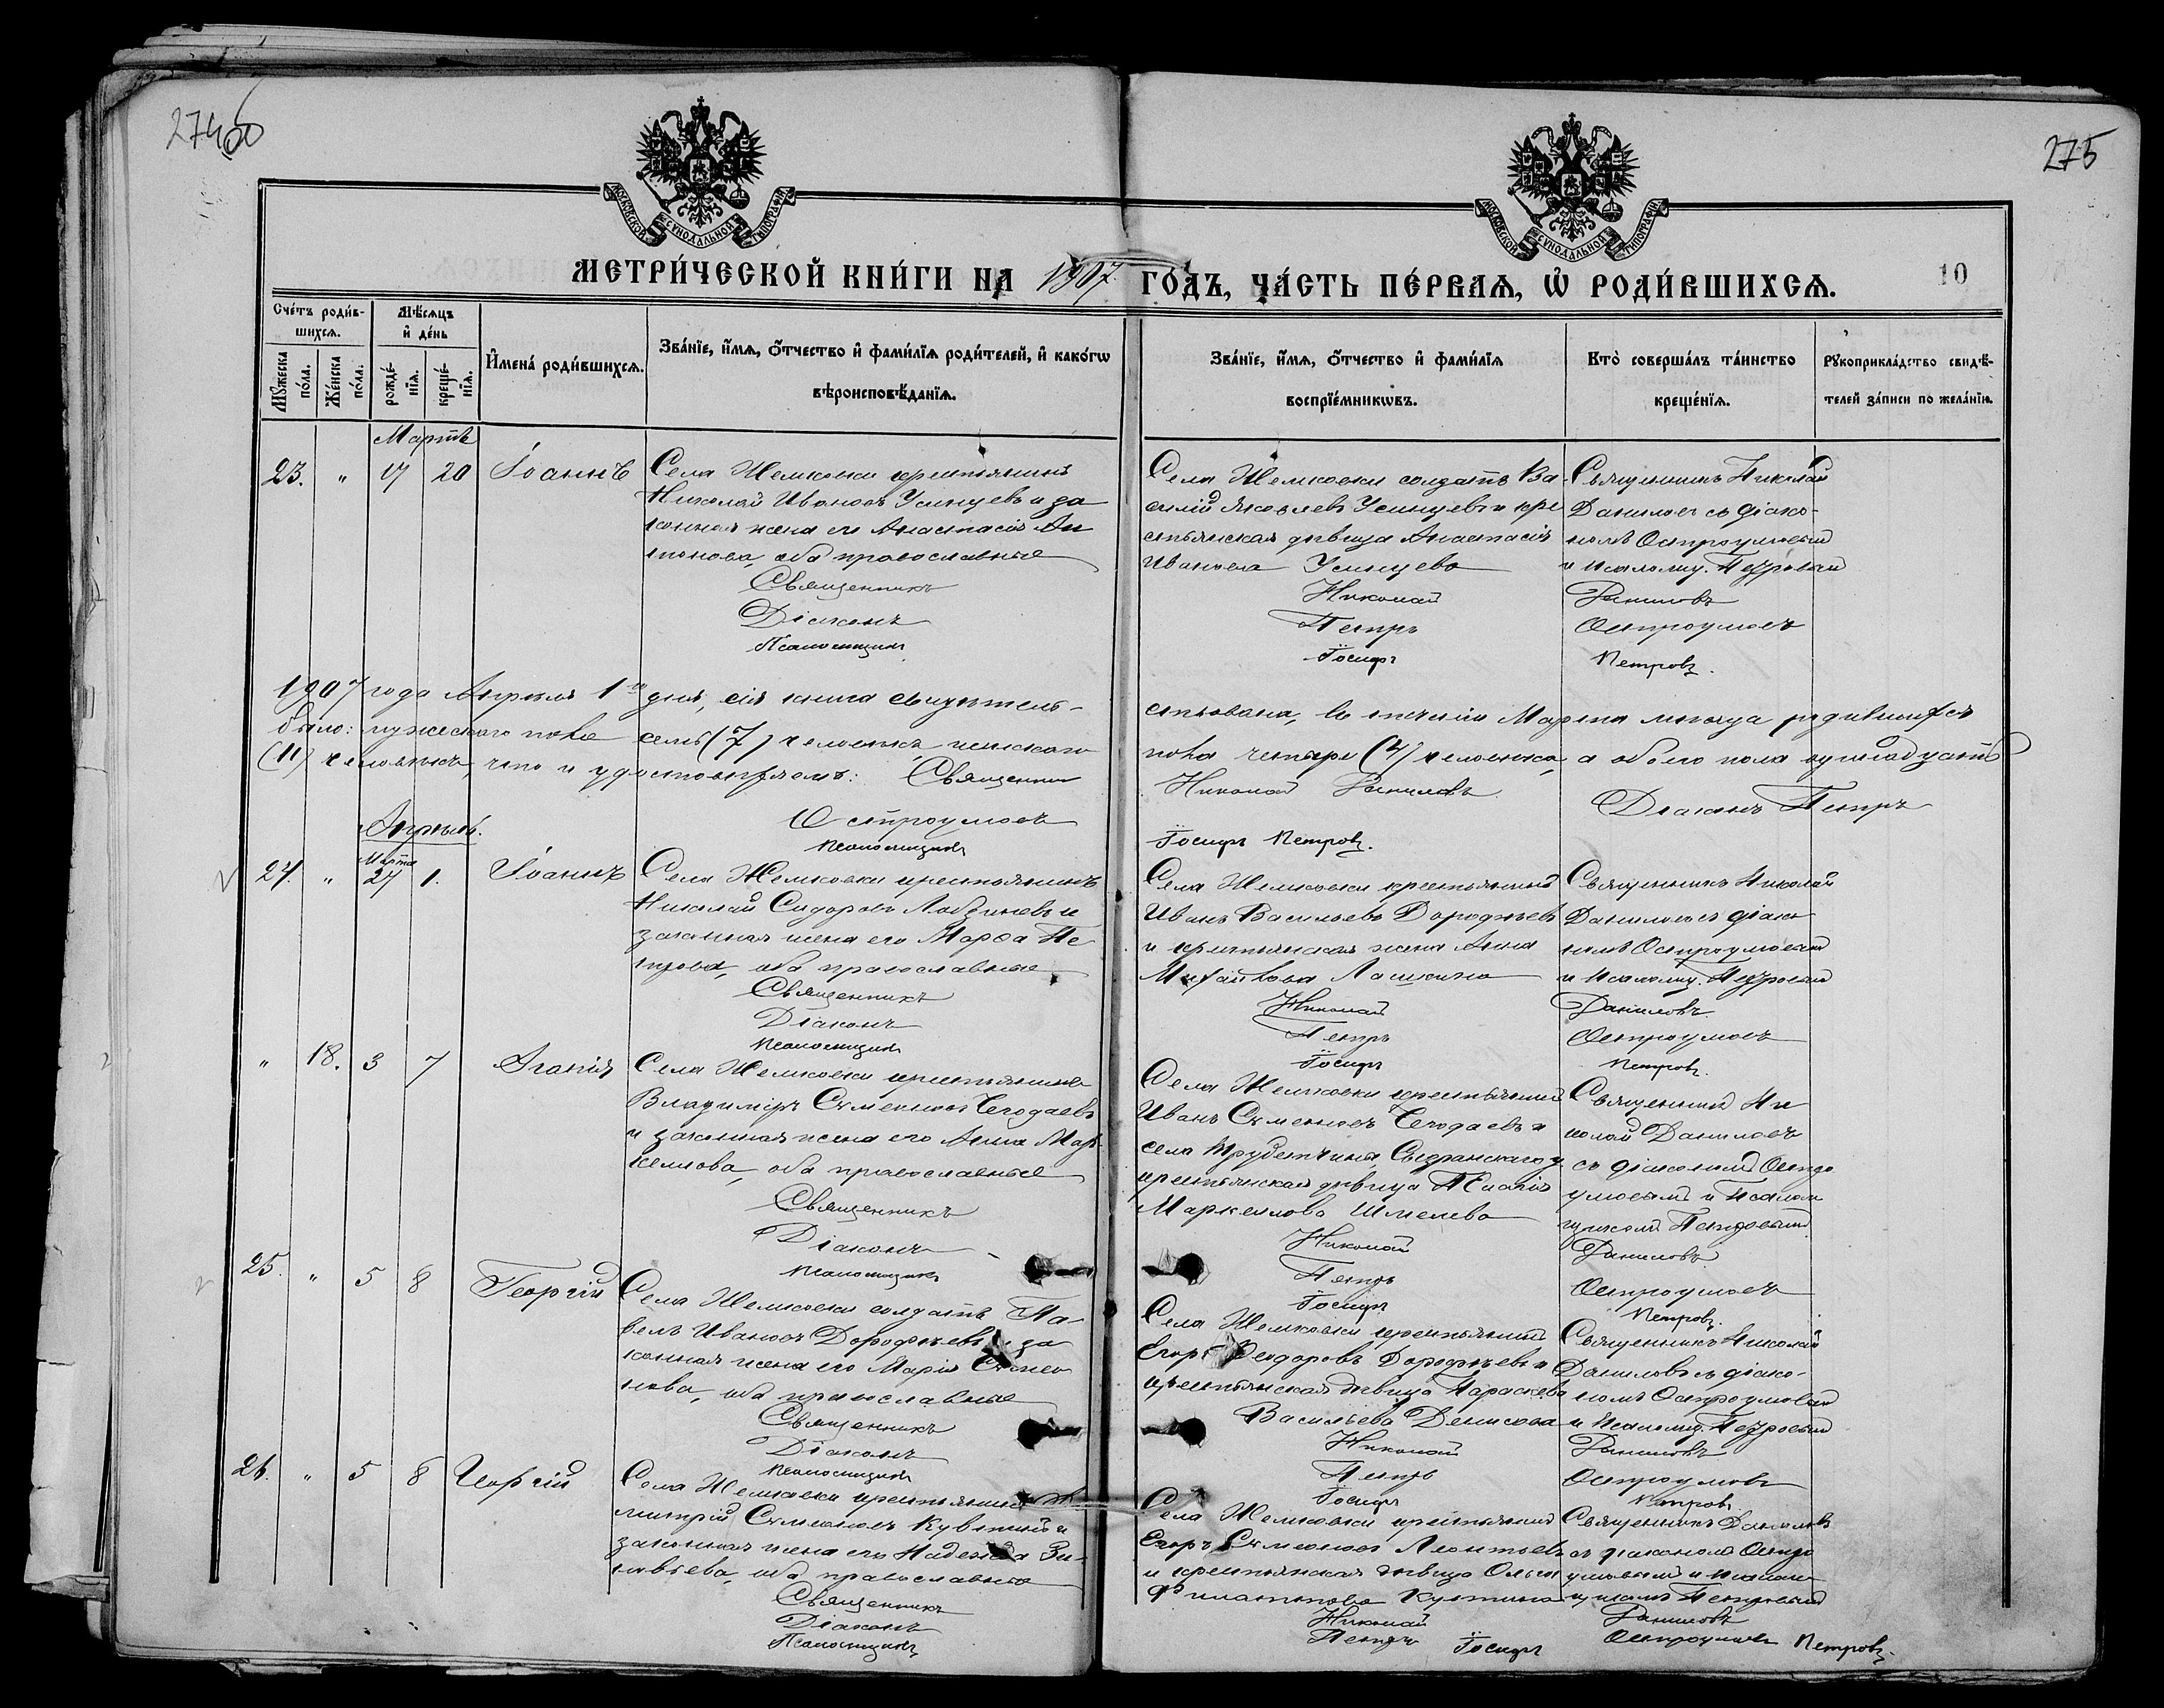 274 об
275
МОСКОВСКОЙ СѴНОДАЛЬНОЙ ТИПОГРАФІИ
МОСКОВСКОЙ СѴНОДАЛЬНОЙ ТИПОГРАФІИ
МЕТРИ́ЧЕСКОЙ КНИ́ГИ НА 1907 ГО́ДЪ, ЧА́СТЬ ПЕ́РВАѦ, Ѽ РОДИ́ВШИХСѦ.
10
Сче́тъ роди́в-
шихсѧ.
Мꙋ́жеска по́ла.
Же́нска по́ла.
Мѣ́сѧцъ
и҆ де́нь
рожде́-
нїѧ.
креще́-
нїѧ.
И҆мена̀ роди́вшихсѧ.
Зва́нїе, и҆́мѧ, ѻ҆́тчество и҆ фами́лїѧ роди́телей, и҆ како́гѡ
вѣроисповѣ́данїѧ.
Зва́нїе, и҆́мѧ, ѻ҆́тчество и҆ фами́лїѧ
воспрїе́мникѡвъ.
Кто̀ соверша́лъ та́инство
креще́нїѧ.
Рꙋкоприкла́дство свидѣ́-
телей за́писи по жела́нїю.
Мартъ
23. " 17 20 Іоаннъ
Села Жемковки крестьянинъ
Николай Ивановъ Усинцевъ и за
конная жена его Анастасія Ан
тонова, оба православные
Священникъ
Діаконъ
Псаломщикъ
Села Жемковки солдатъ Ва-
силій Яковлевъ Усинцевъ и кре
стьянская дѣвица Анастасія
Иванова Усинцева
Николай
Петръ
Іосифъ
Священникъ Николай
Даниловъ съ діако-
номъ Остроумовымъ
и псаломщ. Петровымъ
Даниловъ
Остроумовъ
Петровъ.
1907 года Апрѣля 1го дня, сія книга свидѣтель-
ствована, въ теченіи Марта мѣсяца родившихся
было: мужескаго пола семь (7) человѣкъ, женскаго
пола четыре (4) человѣка, а обоего пола одинадцать
(11) человѣкъ, что и удостовѣряемъ: Священникъ
Николай Даниловъ
Діаконъ Петръ
Остроумовъ
Псаломщикъ
Іосифъ Петровъ.
Апрѣль.
Марта
24. " 27 1. Іоаннъ
Села Жемковки крестьянинъ
Николай Сидоровъ и
законная жена его Марѳа Пе-
трова, оба православные
Священникъ
Діаконъ
Псаломщикъ
Села Жемковки крестьянинъ
Иванъ Васильевъ Дорофѣевъ
и крестьянская жена Анна
Михайлова
Николай
Петръ
Іосифъ
Священникъ Николай
Даниловъ съ діако
номъ Остроумовымъ
и псаломщ. Петровымъ
Даниловъ
Остроумовъ
Петровъ.
" 18. 3 7
Села Жемковки крестьянинъ
Владиміръ Семеновъ Чегодаевъ
и законная жена его Анна Мар-
келлова, оба православные
Священникъ
Діаконъ
Псаломщикъ
Села Жемковки крестьянинъ
Иванъ Семеновъ Чегодаевъ и
села Сызранскаго у.
крестьянская дѣвица
Маркеллова Шмелева
Николай
Петръ
Іосифъ
Священникъ Ни
колай Даниловъ
съ діакономъ Остро
умовымъ и псалом
щикомъ Петровымъ
Даниловъ
Остроумовъ
Петровъ.
25. " 5 8 Георгій
Села Жемковки солдатъ Па-
велъ Ивановъ Дорофѣевъ и за
конная жена его Марія Семе
нова, оба православные
Священникъ
Діаконъ
Псаломщикъ
Села Жемковки крестьянинъ
Егоръ Ѳеодоровъ Дорофѣевъ и
крестьянская дѣвица Параскева
Васильева Денисова
Николай
Петръ
Іосифъ
Священникъ Николай
Даниловъ съ діако-
номъ Остроумовымъ
и псаломщ. Петровымъ
Даниловъ
Остроумовъ
Петровъ.
26. " 5 8 Георгій
Села Жемковки крестьянинъ Ди
митрій Семеновъ и
законная жена его Надежда Зи-
новьева, оба православные
Священникъ
Діаконъ
Псаломщикъ
Села Жемковки крестьянинъ
Егоръ Семеновъ Леонтьевъ
и крестьянская дѣвица Ольга
Филиппова
Николай
Петръ Іосифъ
Священникъ Даниловъ
съ діакономъ Остро
умовымъ и псалом
щикомъ Петровымъ
Даниловъ
Остроумовъ Петровъ.